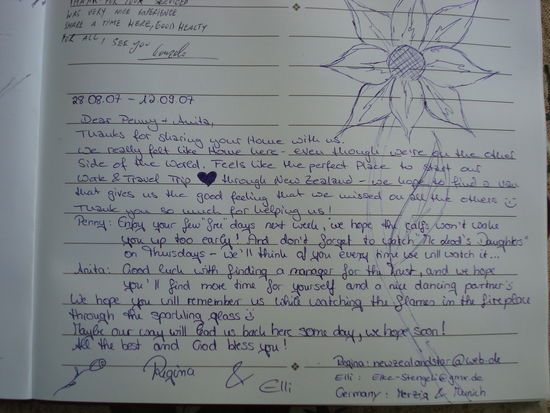 THANK FOR YOUR SERVICES
WAS VERY NICE EXPERIENCE
SHARE A TIME HERE, GOOD HEALTY
FOR ALL, I SEE YOU
28.08.07 - 12.09.07
Dear Penny + Anita,
Thanks for sharing your Home with us.
We really felt like Home here - even though, we're on the other
Side of the World. Feels like the perfect Place to start our
Work & Travel Trip ♥ through New Zealand - we hope to find a van
that gives us the good feeling that we missed on all the others ☺
Thank you so much for helping us!
Penny: Enjoy your few "frei" days next week, we hope the calfs won't wake
you up too early! And don't forget to watch "Mc Leod's Daughters"
on Thursdays - We'll think of you every time we will watch it...
Anita: Good luck with finding a manager for the trust, and we hope
you'll find more time for yourself and a nice dancing partner ☺
We hope you will remember us while watching the flames in the fireplace
through the sparkling glass ☺
Maybe our way will lead us back here some day, we hope soon!
All the best and God bless you!
Regina & Elli
Regina: newzealandstar@web.de
Elli: Elke-Stengel@gmx.de
Germany: Merzig & Munich